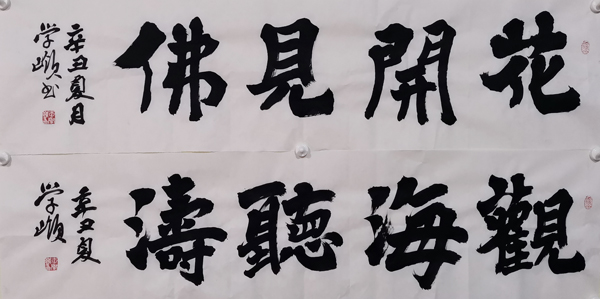 花開見佛
辛丑夏月
学
觀海聽濤
辛丑夏
学